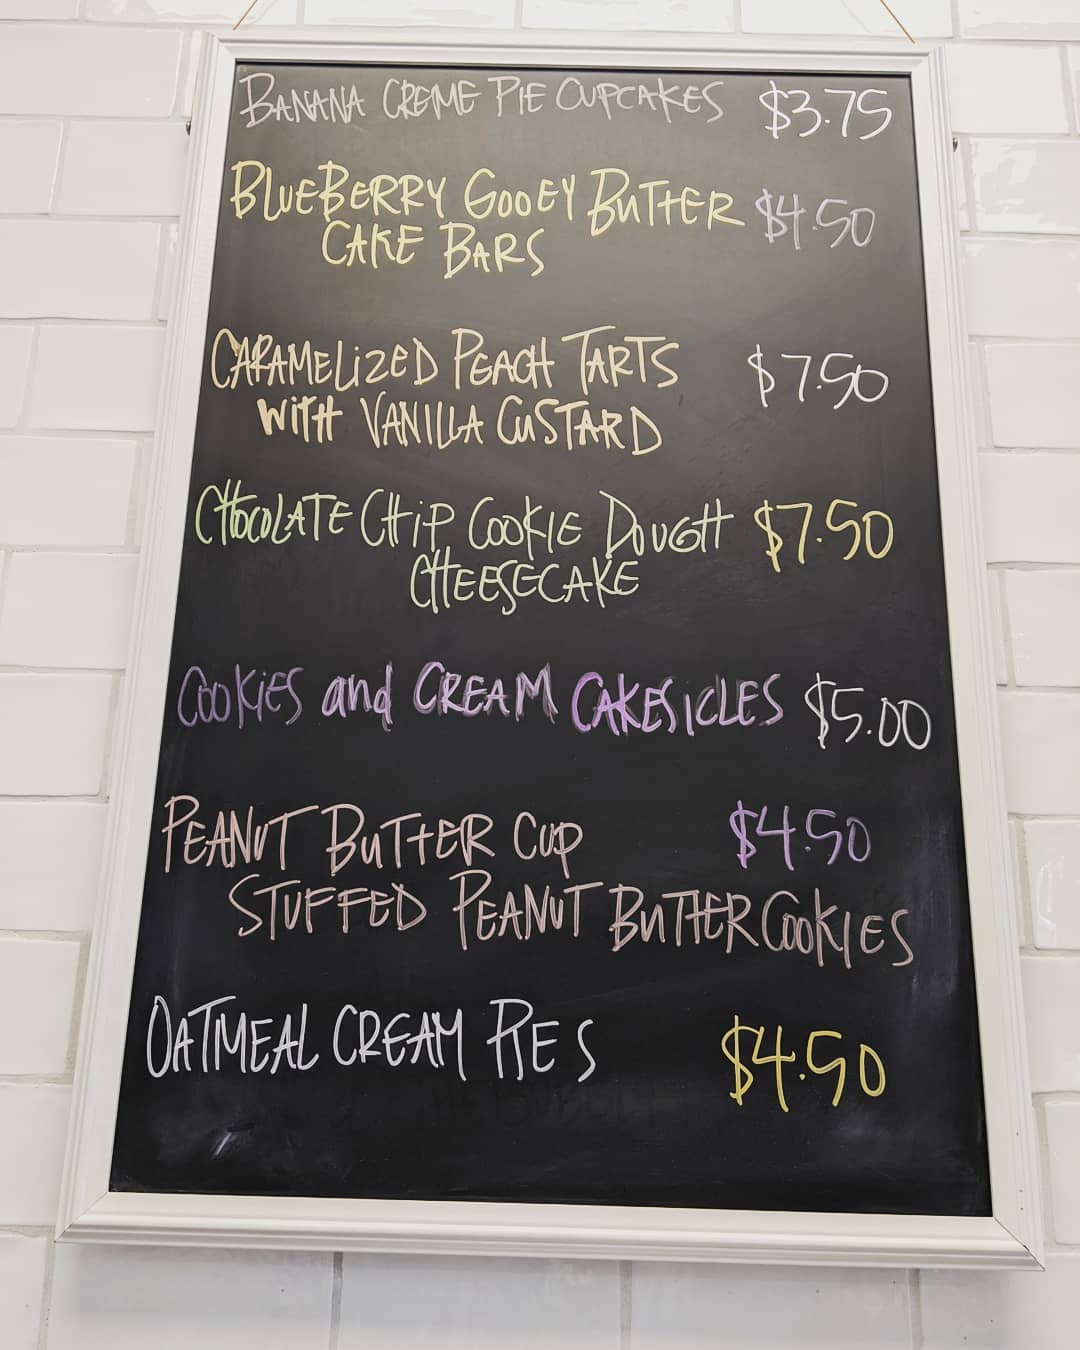 BANANA CREME PIE CUPCAKES $3.75
BLUEBERRY GOOEY BUTTER $4.50
CAKE BARS
CARAMELIZED PEACH TARTS $7.50
WITH VANILLA CUSTARD
CHOCOLATE CHIP COOKIE DOUGH $7.50
CHEESECAKE
COOKIES and CREAM CAKESICLES $5.00
PEANUT BUTTER CUP $4.50
STUFFED PEANUT BUTTER COOKIES
OATMEAL CREAM PIES $4.50